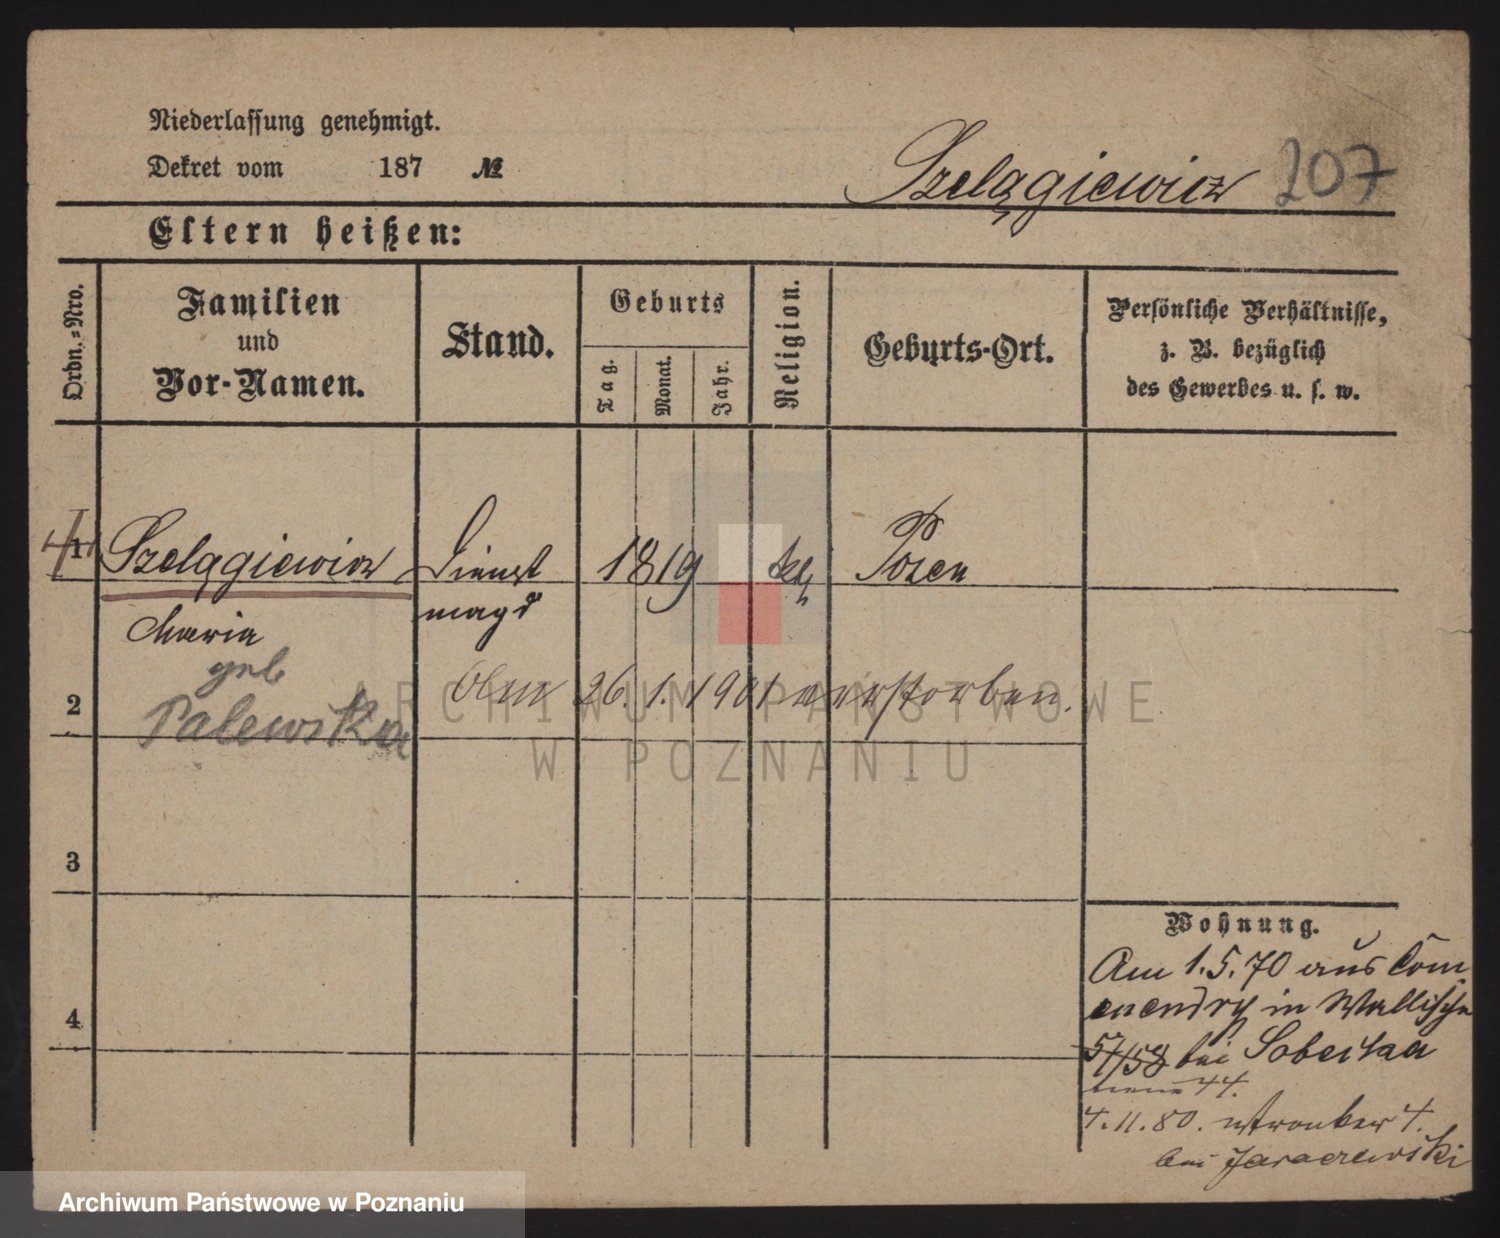 Niederlassung genehmigt.
Dekret vom 187 №
Szelągiewicz 207
Eltern heißen:
Ordn.-Nro.
Familien
und
Vor-Namen.
Stand.
Geburts
Tag.
Monat.
Jahr.
Religion.
Geburts-Ort.
Persönliche Verhältnisse,
z. B. bezüglich
des Gewerbes u. s. w.
1 Szelągiewicz Dienst 1819 Posen
Maria magd
geb
2 Palewska 26. 1. 1901 verstorben.
ARCHIWUM PAŃSTWOWE
W POZNANIU
3
4
Wohnung.
Am 1. 5. 70 aus Com
in Wallische
57/58 bei
neue 44.
4. 11. 80. Wronker 4.
bei Jaraczewski
Archiwum Państwowe w Poznaniu